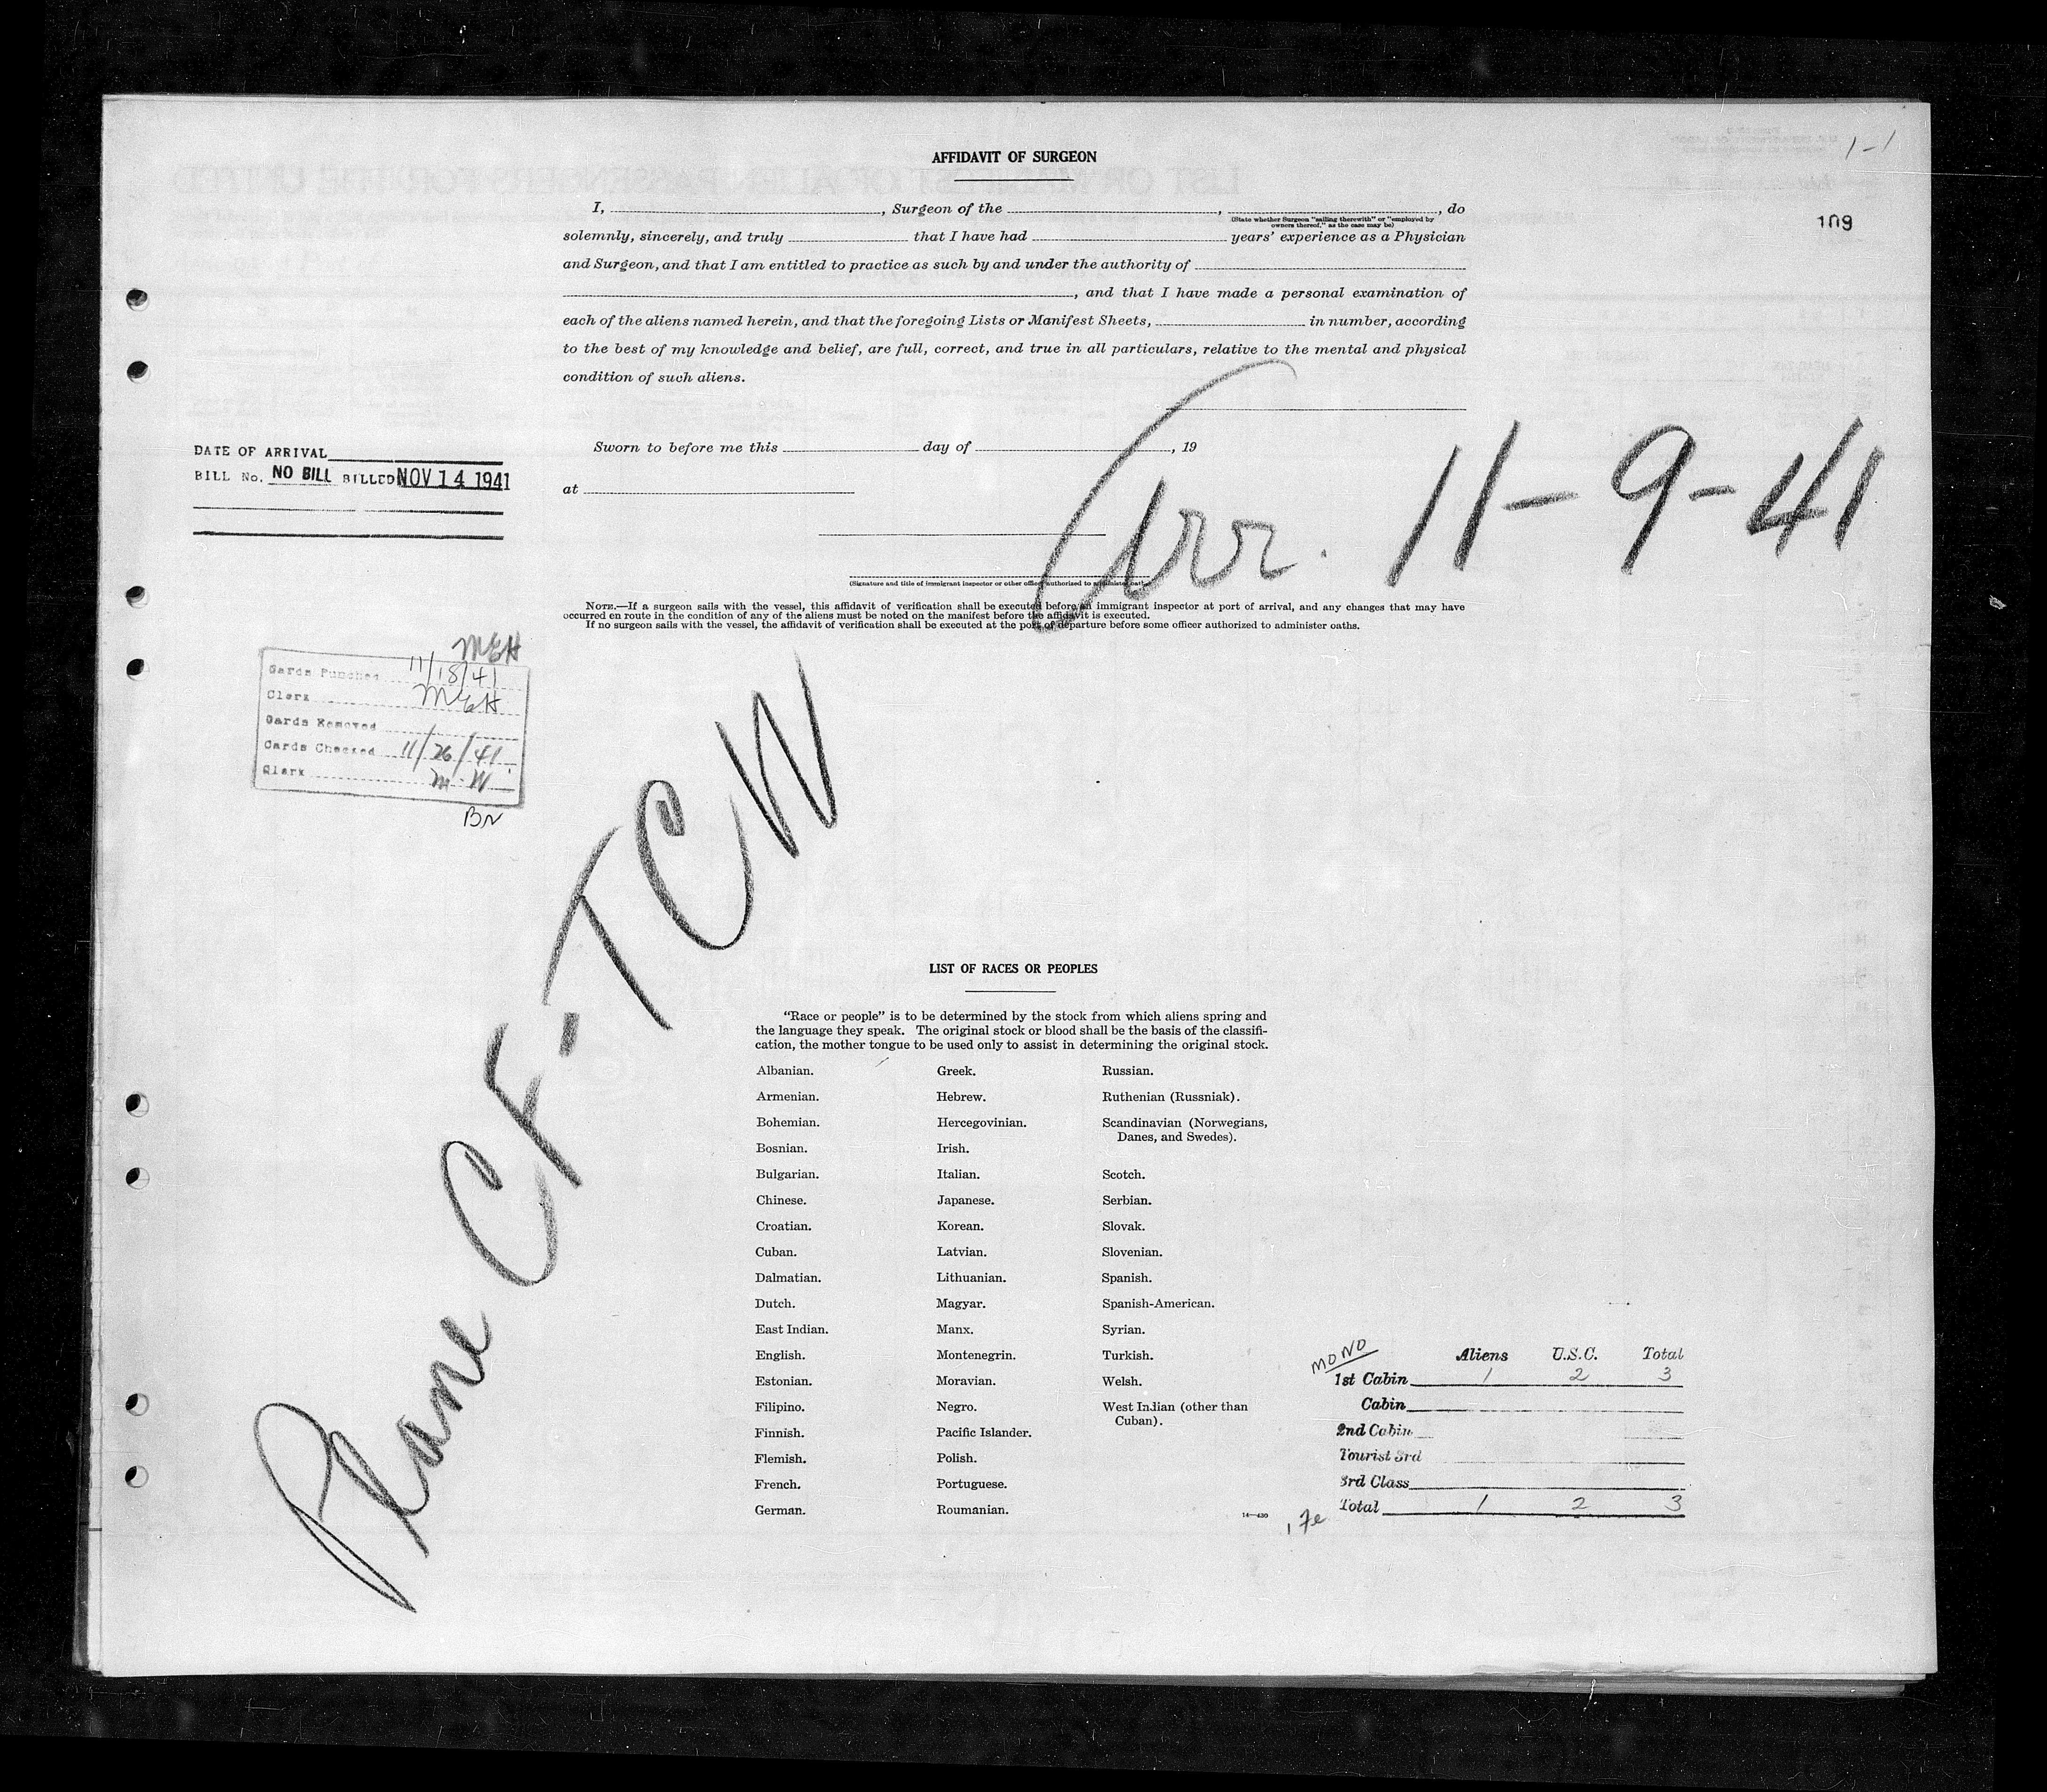 1-1
109
AFFIDAVIT OF SURGEON
I, , Surgeon of the , , do
(State whether Surgeon "sailing therewith" or "employed by
owners thereof," as the case may be)
solemnly, sincerely, and truly that I have had years' experience as a Physician
and Surgeon, and that I am entitled to practice as such by and under the authority of
, and that I have made a personal examination of
each of the aliens named herein, and that the foregoing Lists or Manifest Sheets, in number, according
to the best of my knowledge and belief, are full, correct, and true in all particulars, relative to the mental and physical
condition of such aliens.
Sworn to before me this day of , 19
at
(Signature and title of immigrant inspector or other officer authorized to administer oaths)
NOTE.—If a surgeon sails with the vessel, this affidavit of verification shall be executed before an immigrant inspector at port of arrival, and any changes that may have
occurred en route in the condition of any of the aliens must be noted on the manifest before the affidavit is executed.
If no surgeon sails with the vessel, the affidavit of verification shall be executed at the port of departure before some officer authorized to administer oaths.
DATE OF ARRIVAL
BILL No. NO BILL BILLED NOV 14 1941
Arr. 11-9-41
MEH
Cards Punched 11/18/41
Clerk MEH
Cards Removed
Cards Checked 11/26/41
Clerk M.W.
BN
Plane CF-TCW
LIST OF RACES OR PEOPLES
"Race or people" is to be determined by the stock from which aliens spring and
the language they speak. The original stock or blood shall be the basis of the classifi-
cation, the mother tongue to be used only to assist in determining the original stock.
Albanian.
Armenian.
Bohemian.
Bosnian.
Bulgarian.
Chinese.
Croatian.
Cuban.
Dalmatian.
Dutch.
East Indian.
English.
Estonian.
Filipino.
Finnish.
Flemish.
French.
German.
Greek.
Hebrew.
Hercegovinian.
Irish.
Italian.
Japanese.
Korean.
Latvian.
Lithuanian.
Magyar.
Manx.
Montenegrin.
Moravian.
Negro.
Pacific Islander.
Polish.
Portuguese.
Roumanian.
Russian.
Ruthenian (Russniak).
Scandinavian (Norwegians,
Danes, and Swedes).
Scotch.
Serbian.
Slovak.
Slovenian.
Spanish.
Spanish-American.
Syrian.
Turkish.
Welsh.
West Indian (other than
Cuban).
14—430
MONO
Aliens U.S.C. Total
1st Cabin 1 2 3
Cabin
2nd Cabin
Tourist 3rd
3rd Class
Total 1 2 3